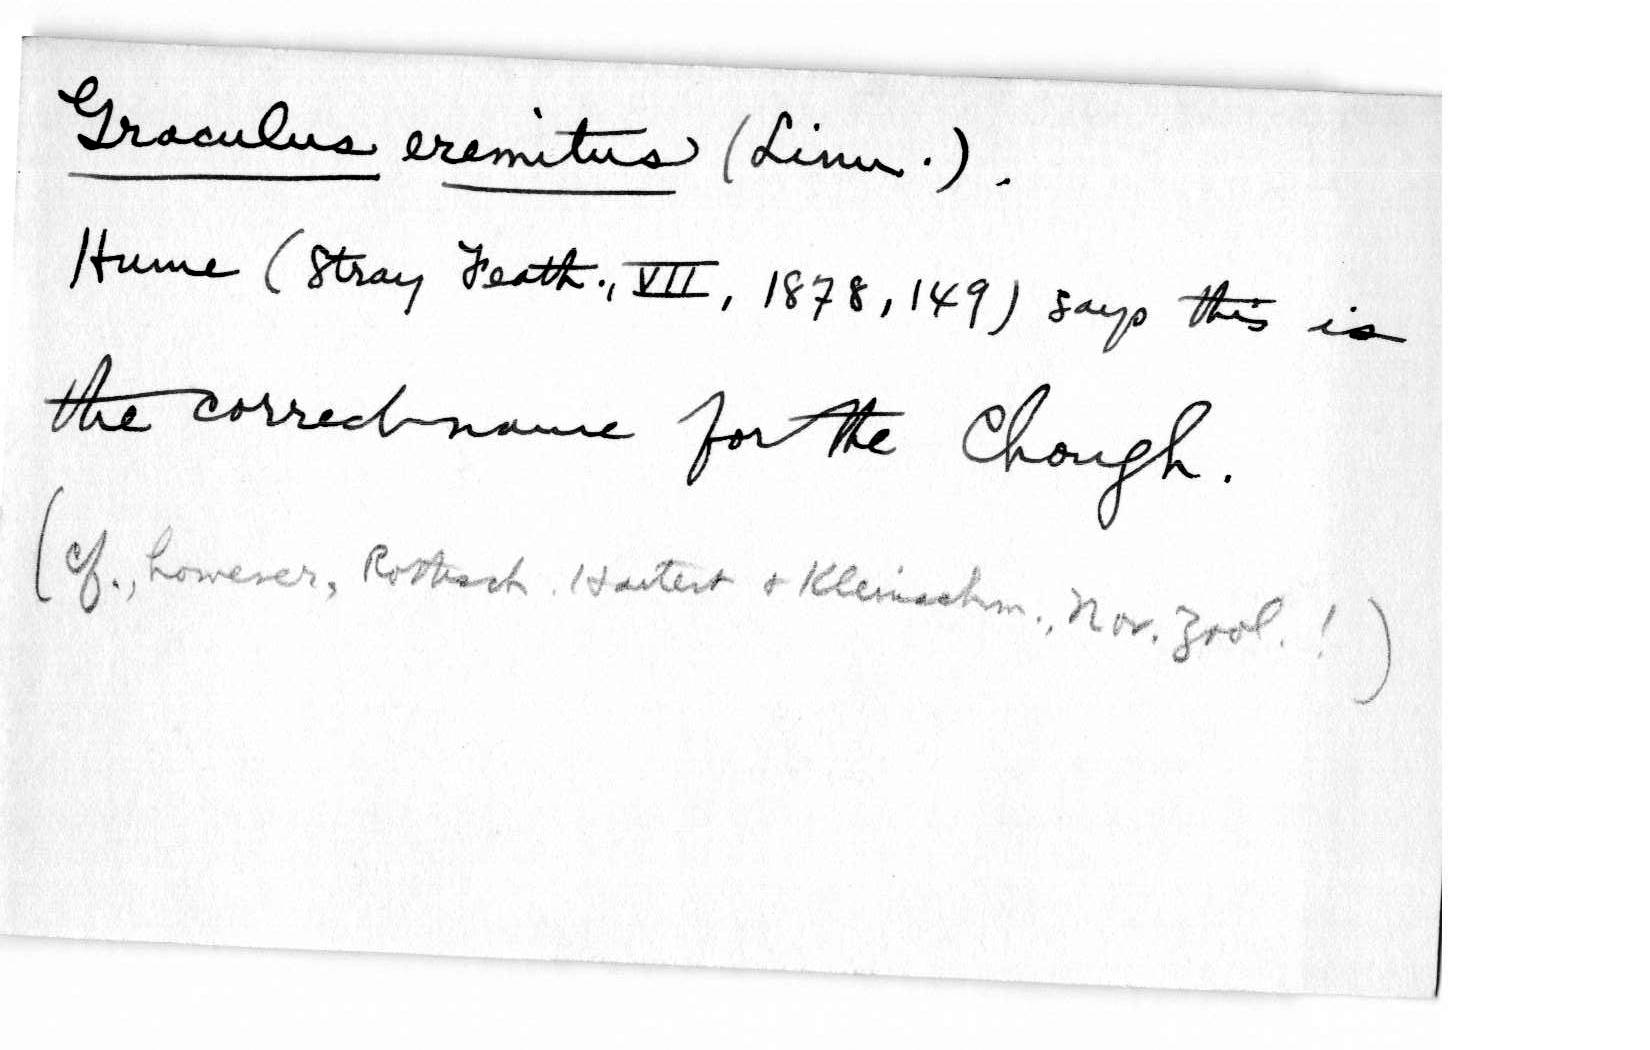 Graculus eremitus (Linn.).
Hume (Stray Feath., VII, 1878, 149) says this is
the correct name for the Chough.
(Cf., however, Rothsch. Hartert + Kleinschm., Nov. Zool. !)